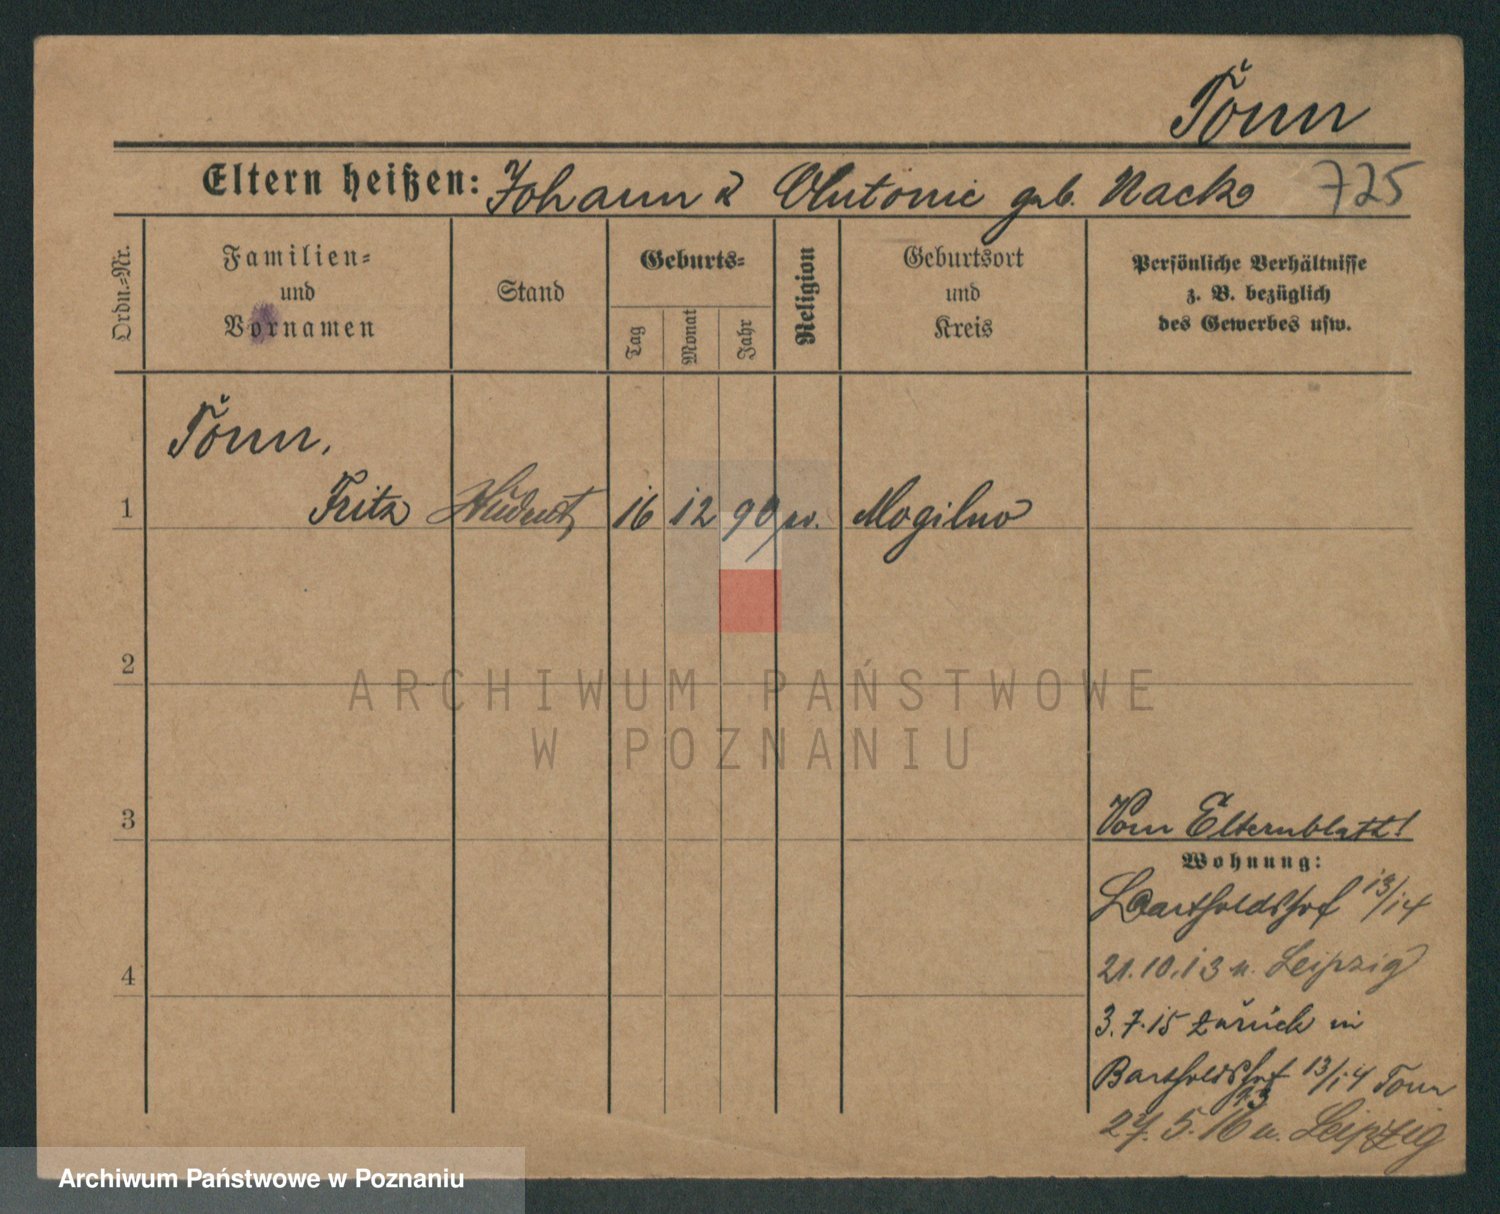 Tönn
Eltern heißen: Johann & Antonie geb. Nacke 725
Ordn.-Nr.
Familien-
und
Vornamen
Stand
Geburts-
Tag
Monat
Jahr
Religion
Geburtsort
und
Kreis
Persönliche Verhältnisse
z. B. bezüglich
des Gewerbes usw.
Tönn,
1 Fritz Student 16 12 90 ev. Mogilno
2
ARCHIWUM PAŃSTWOWE
W POZNANIU
3
Vom Elternblatt!
Wohnung:
Bartholdshof 13/14
4
21.10.13 n. Leipzig
3.7.15 zurück in
Bartholdshof 13/14 Tönn
27.5.16 n. Leipzig
Archiwum Państwowe w Poznaniu